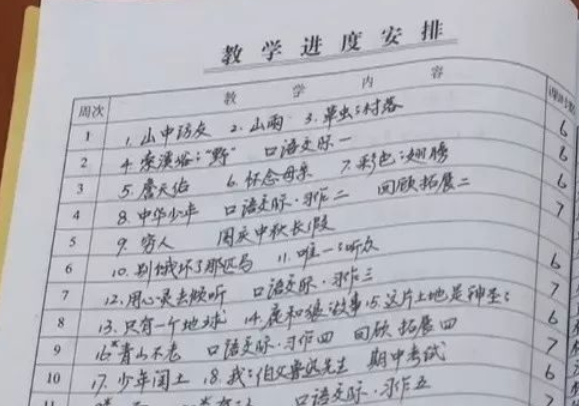 教学进度安排
周次 教学内容
1 1.山中访友 2.山雨 3.草虫的村落 6
2 4.索溪峪的"野" 口语交际一 6
3 5.詹天佑 6.怀念母亲 7.彩色的翅膀 6
4 8.中华少年 口语交际·习作二 回顾拓展二 7
5 9.穷人 国庆中秋长假
6 10.别饿坏了那匹马 11.唯一的听众 6
7 12.用心灵去倾听 口语交际·习作三 7
8 13.只有一个地球 14.鹿和狼的故事 15.这片土地是神圣的 6
9 16*青山不老 口语交际·习作四 回顾拓展四 7
10 17.少年闰土 18.我的伯父鲁迅先生 期中考试 6
11 口语交际·习作五 7